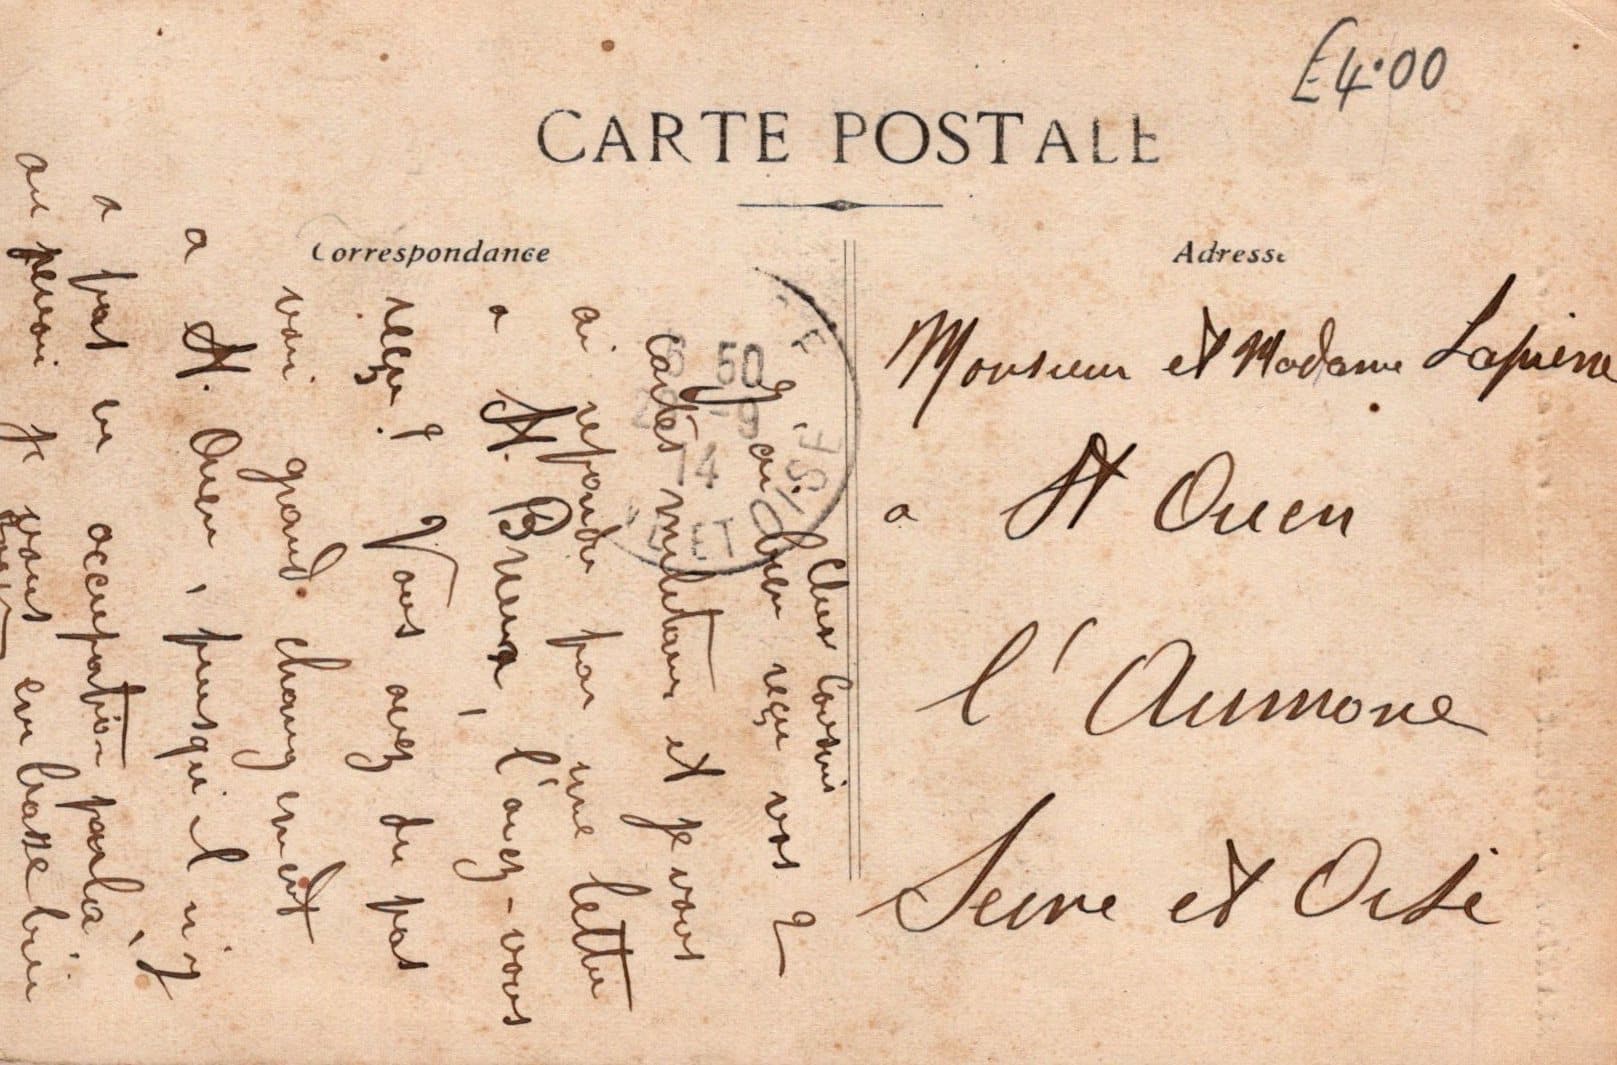 £4.00
CARTE POSTALE
Correspondance
Adresse
6 50
-9
14
SEINE ET OISE
Monsieur et Madame Lapierre
a St Ouen
l'Aumone
Seine et Oise
Chers Cousins
J'ai bien reçu vos 2
cartes militaire et je vous
ai repondu par une lettre
a St. Brieuc, l'avez-vous
reçu? Vous avez du pas
voir grand changement
a St. Ouen, puisqu'il n'y
a pas eu occupation par là,
au revoir je vous embrasse bien